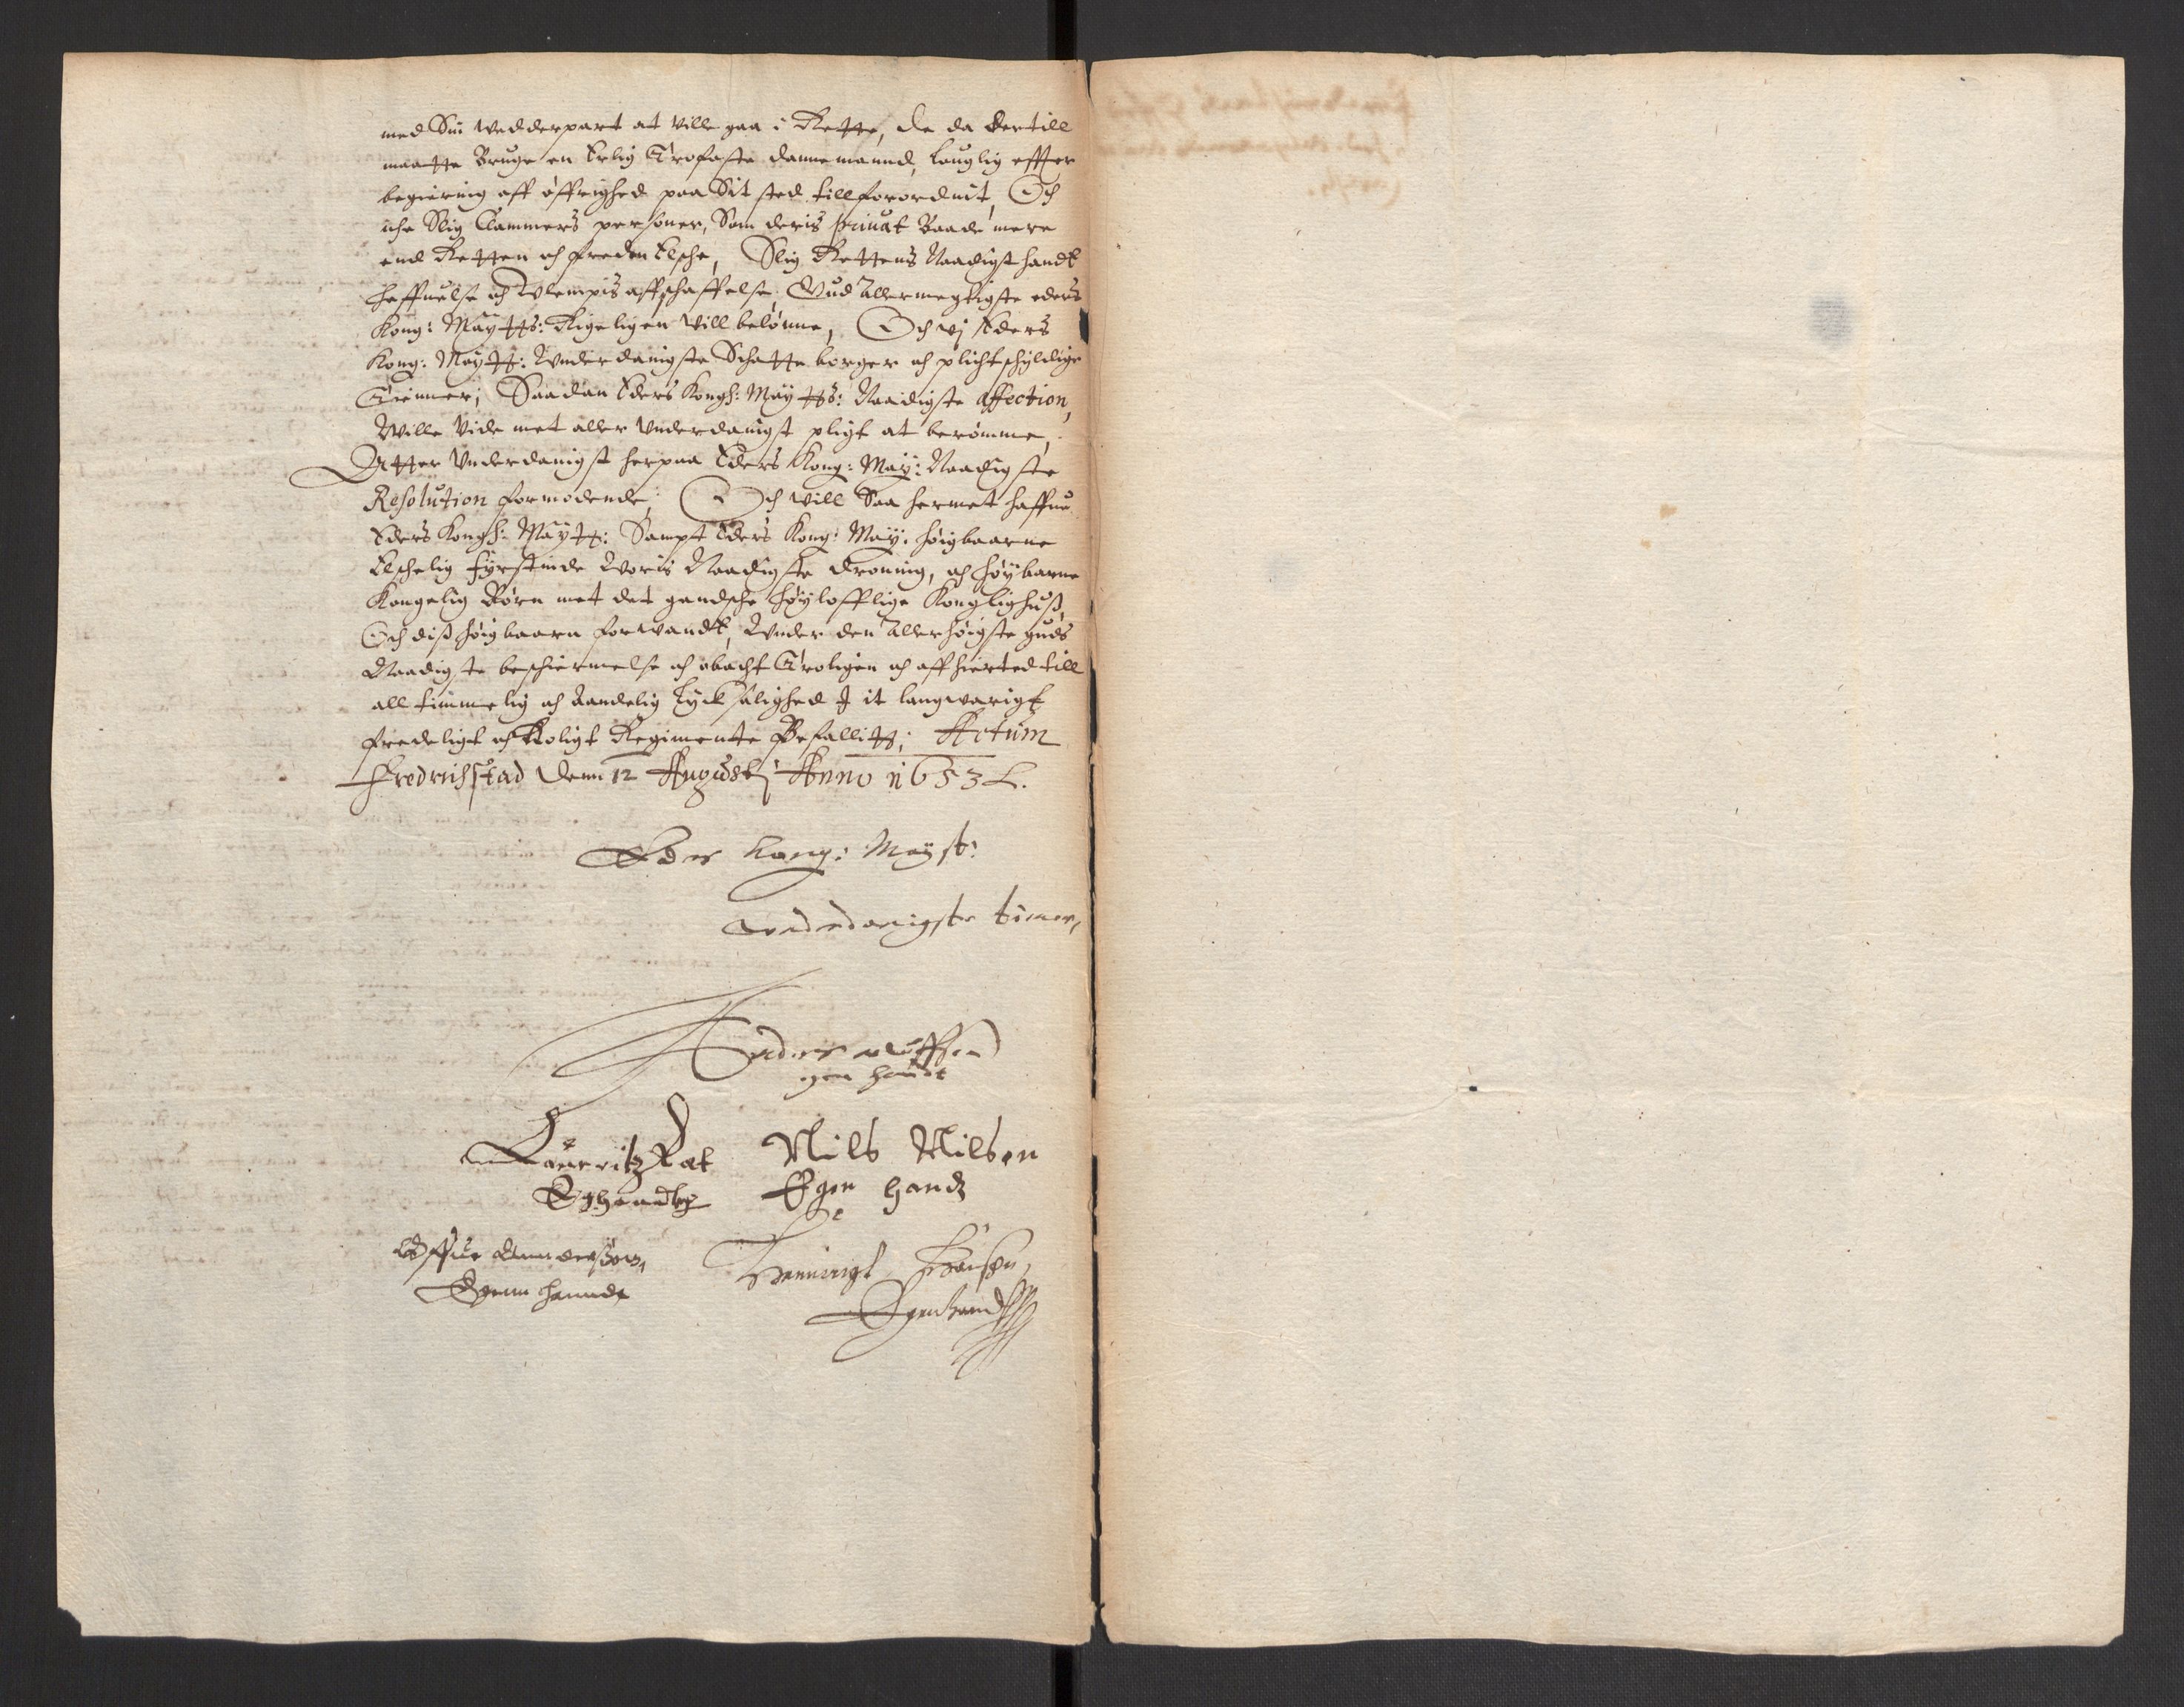 med Sin Wedderpart at Ville gaa i Rette, de da dertill
maatte Bruge en Erlig Trofaste dannemannd, Lauglig effter
begiering aff øffrighed paa Sit sted tillforordnit, Och
iche Slig Clammers personer, Som deris privat Baade mere
end Retten och freden Elsche, Slig Rettens Naadigst handt
haffuelse och Wlempis affschaffelse, Gud Allermegtigste eders
Kong: Maytts: Rigeligen Vill belønne, Och vj Eders
Kong: Maytt: Vnderdanigste Schatte borger och plichtschyldige
Tienner, Saadan Eders Kongh: Maytts: Naadigste affection,
Wille Vide met aller Vnderdanigst pligt at berømme,
Atter Vnderdanigst herpaa Eders Kong: May: Naadigste
Resolution formodende, Och will Saa hermet haffue
Eders Kongh: Maytt: Sampt Eders Kong: May: høigbaarne
Elschelig fyrstinde Woris Naadigste droning, och høybarne
Kongelig Børn met det gandsche høylofflige Konglighuß,
Och diß høigbaarn forwandt, Wnder den Allerhøigste guds
Naadigste beschiermelse och obacht Troligen och aff hierted till
all timmelig och Aandelig Lycksalighed I it langvarigt
fredeligt och Roligt Regimente Befallitt; Actum
Fredrichstad denn 12 Augusti Anno 1653
Eders Kong: Mayst:
vnderdanigste tiener,
Anders oluffsen
egen handt
Lauritz Rat
Eghandt
Nils Nilsen
Egen hand
Anndersøn,
Egenn hanndt
Henningh
Egenhand